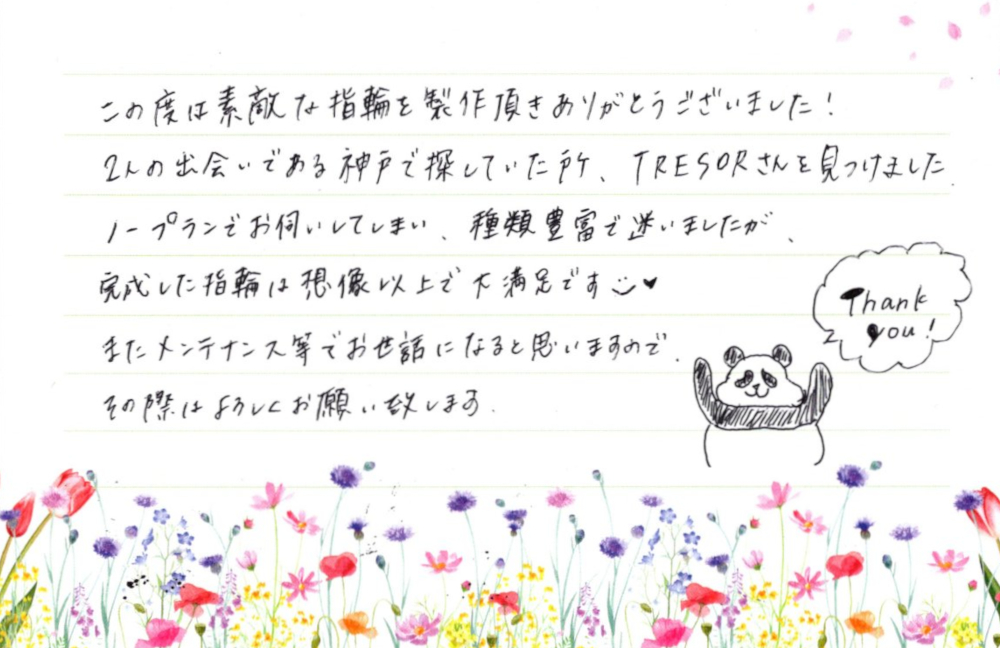 この度は素敵な指輪を製作頂きありがとうございました!
2人の出会いである神戸で探していた所、TRESORさんを見つけました.
ノープランでお伺いしてしまい、種類豊富で迷いましたが、
完成した指輪は想像以上で大満足です
またメンテナンス等でお世話になると思いますので、
その際はよろしくお願い致します.
Thank
you!